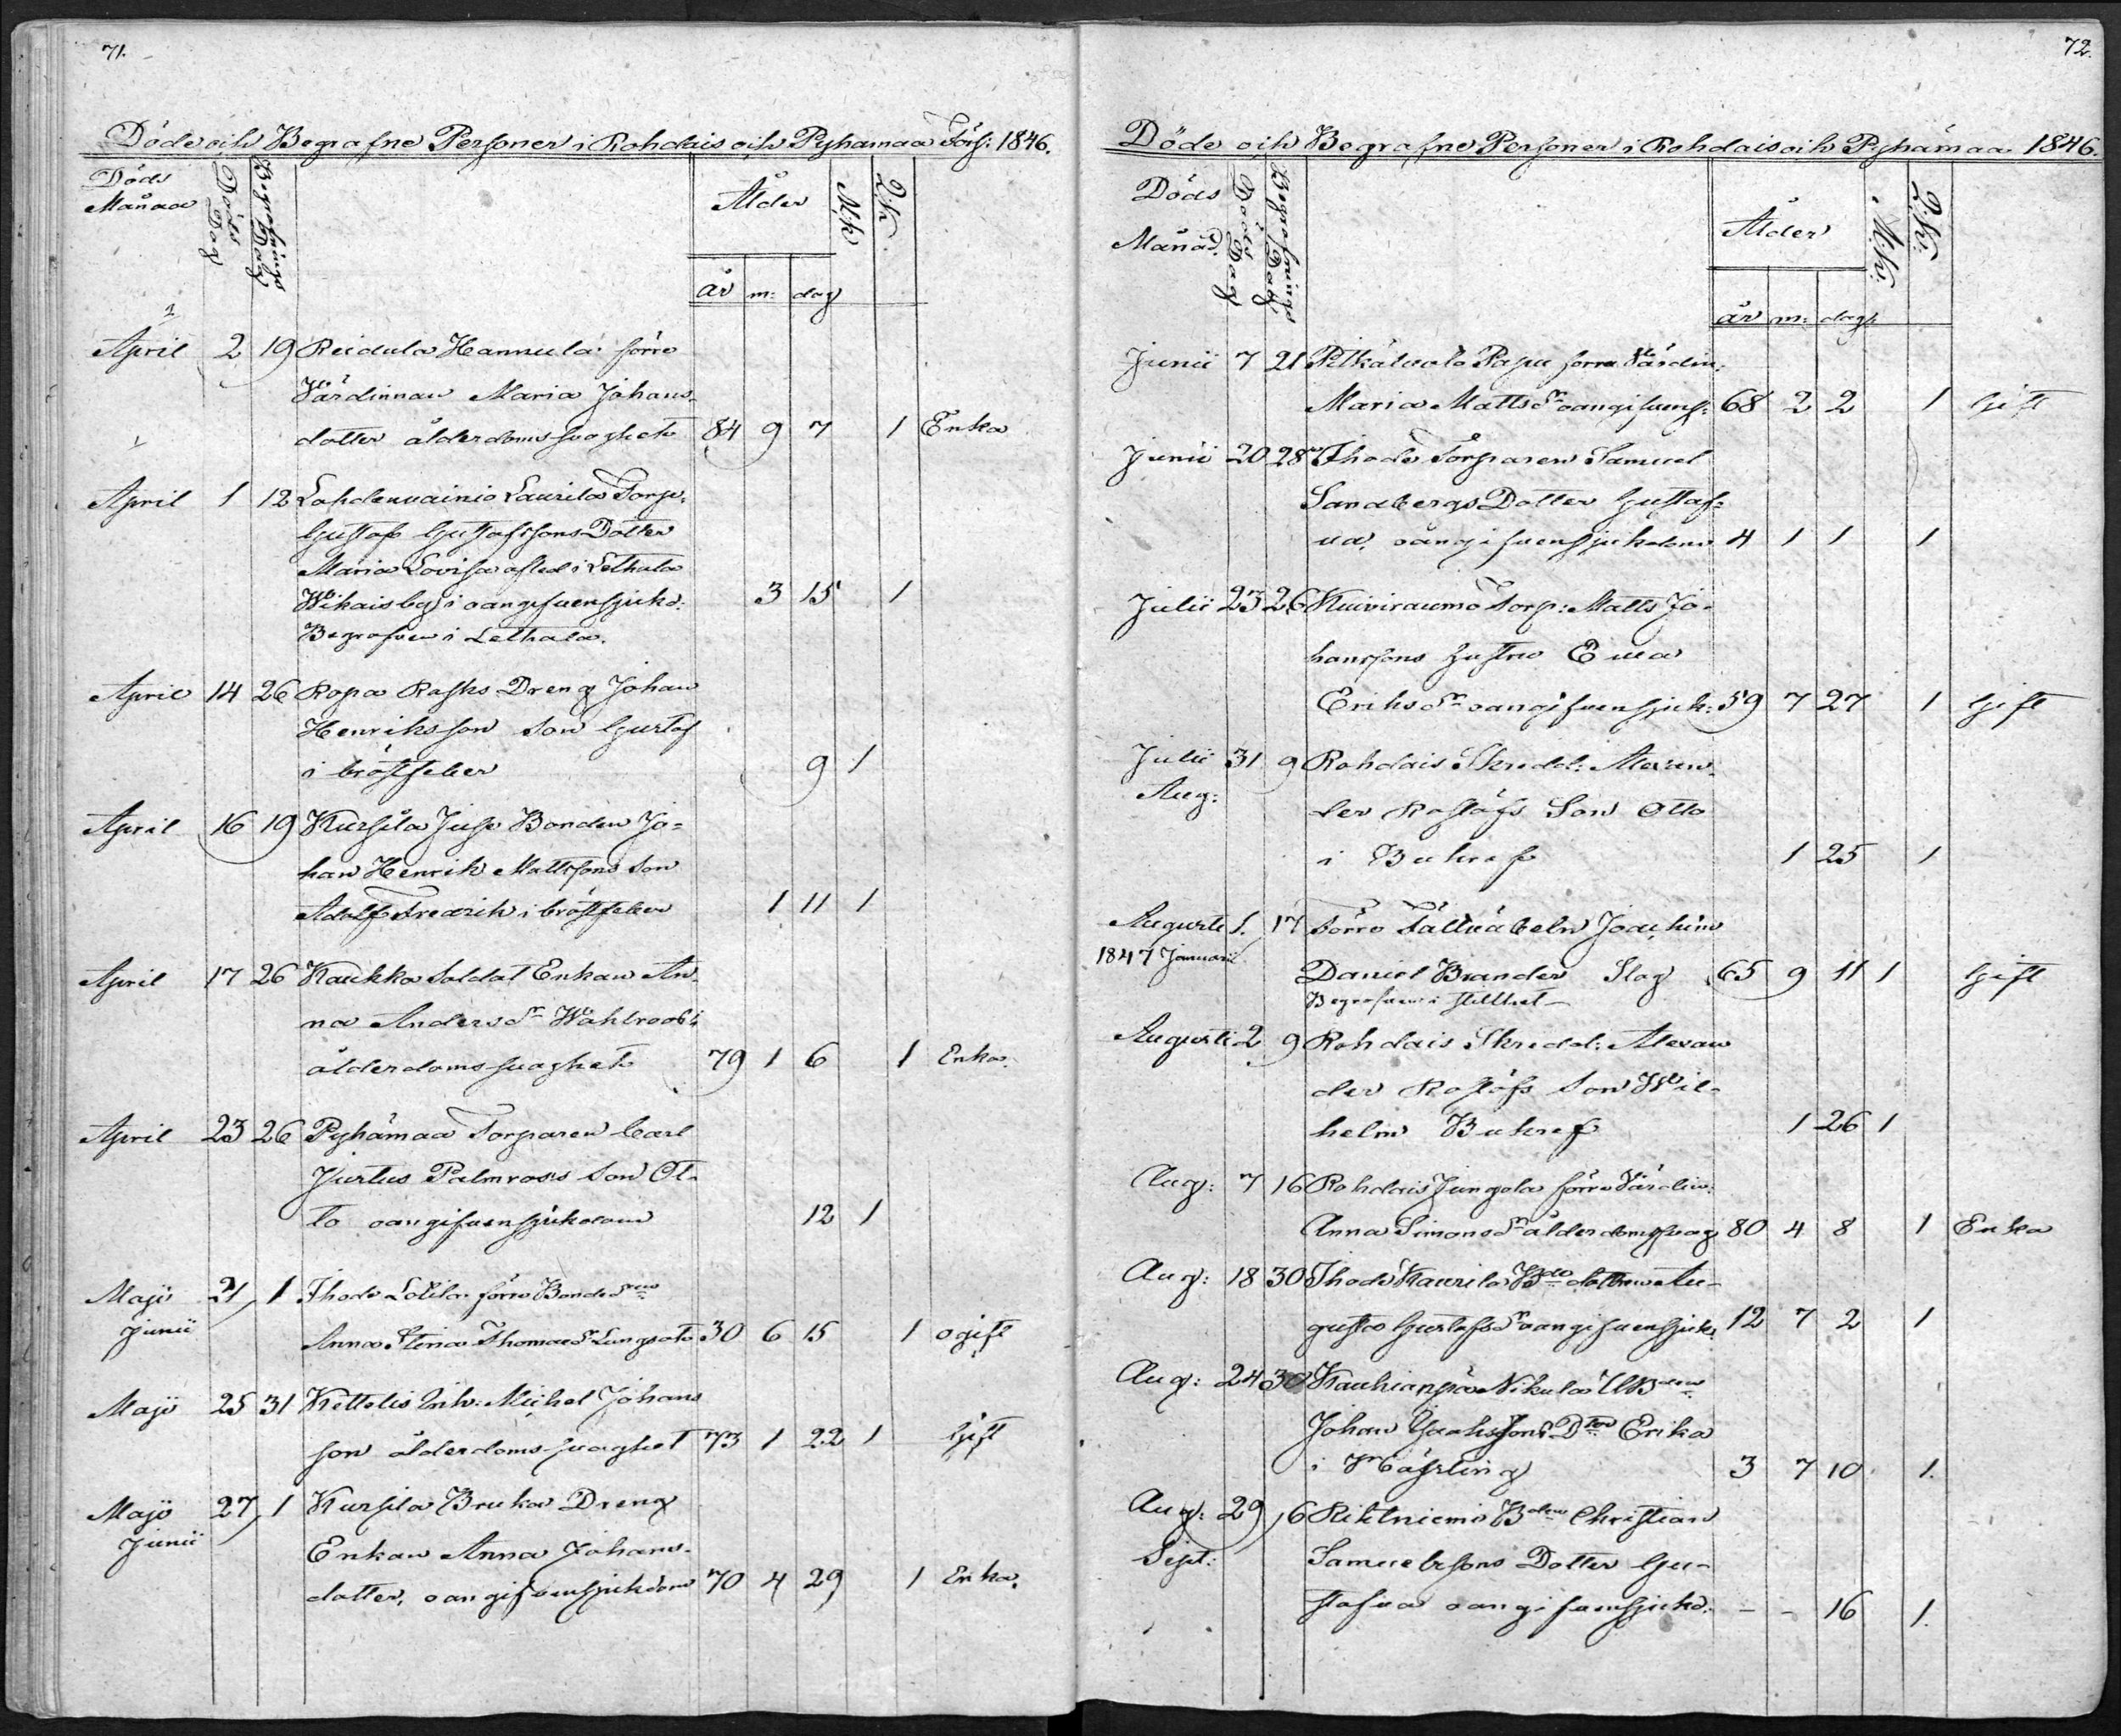 71.
Döde och Begrafne Personer i Rohdais och Pyhämaa Förs: 1846.
Döds Månad
Döds Dag
Begrafnings Dag
Ålder
Mk
Qk
år m: dag
April 2 19 Reidula Hannula förre
Värdinnan Maria Johans-
dotter ålderdoms svaghet 84 9 7 1 Enka
April 1 12 Lahdenvainio Laurila Torp:
Gustaf Gustafssons Dotter
Maria Lovisa afled i Lethala
Wihais by i oangifven sjukd: 3 15 1
Begrafven i Lethala.
April 14 26 Ropa Rasks Dreng Johan
Henriksson Son Gustaf
i bröstfeber 9 1
April 16 19 Kursila Juse Bonden Jo-
han Henrik Mattssons Son
Adolf Fredrik i bröstfeber 1 11 1
April 17 26 Kaukka Soldat Enkan An-
na Anders Dr Wahlroos i
ålderdoms svaghet 79 1 6 1 Enka.
April 23 26 Pyhämaa Torparen Carl
Justus Palmroos's Son Ot-
to oangifven sjukdom 12 1
Majo 21 1 Ihode Lälila förre Bonde
Junii
Anna Stina Thomas Dr Lungsot 30 6 15 1 ogift
Majo 25 31 Kettelis Inh: Michel Johans
son ålderdoms svaghet 73 1 22 1 Gift
Majo 27 1 Kursila Bruka Dreng
Junii
Enkan Anna Johans-
dotter, oangifven sjukdom 70 4 29 1 Enka.
72.
Döde och Begrafne Personer i Rohdais och Pyhämaa 1846.
Döds Månad
Döds Dag
Begrafnings Dag
Ålder
M:k:
Q:k:
år m: dag:
Junii 7 21 Pitkäluoto Papu förra Värdin:
Maria Matts Dr oangifven s: 68 2 2 1 Gift
Junii 20 28 Ihode Torparen Samuel
Sandbergs Dotter Gustaf-
va, oangifven sjukdom 4 1 1 1
Julii 23 26 Kuiviraumo Torp: Matts Jo-
hanssons hustru Eva
Eriks Dr oangifven sjuk: 59 7 27 1 Gift
Julii 31 9 Rohdais Skredd: Alexan-
Aug:
der Roslöfs Son Otto
i Bukref 1 25 1
Augusti 1. 17 Förre Fältväbeln Joachim
1847 Januarii
Daniel Brander Slag 65 9 11 1 Gift
Begrafven i stillhet
Augusti 2 9 Rohdais Skredd: Alexan
der Roslöfs Son Wil-
helm Bukref 1 26 1
Aug: 7 16 Rohdais Jungola förre Värdin:
Anna Simons Dr ålderdomssvag 80 4 8 1 Enka
Aug: 18 30 Ihode Kaurila dottren Au-
gusta Gustafs Dr oangifven sjuk: 12 7 2 1
Aug: 24 30 Kauhianpä Nikula
Johan Isakssons Dr Erika
i Mässling 3 7 10 1.
Aug: 29 6 Riktniemi Bden Christian
Sept:
Samuelssons Dotter Gu-
stafva oangifven sjukd: - - 16 1.